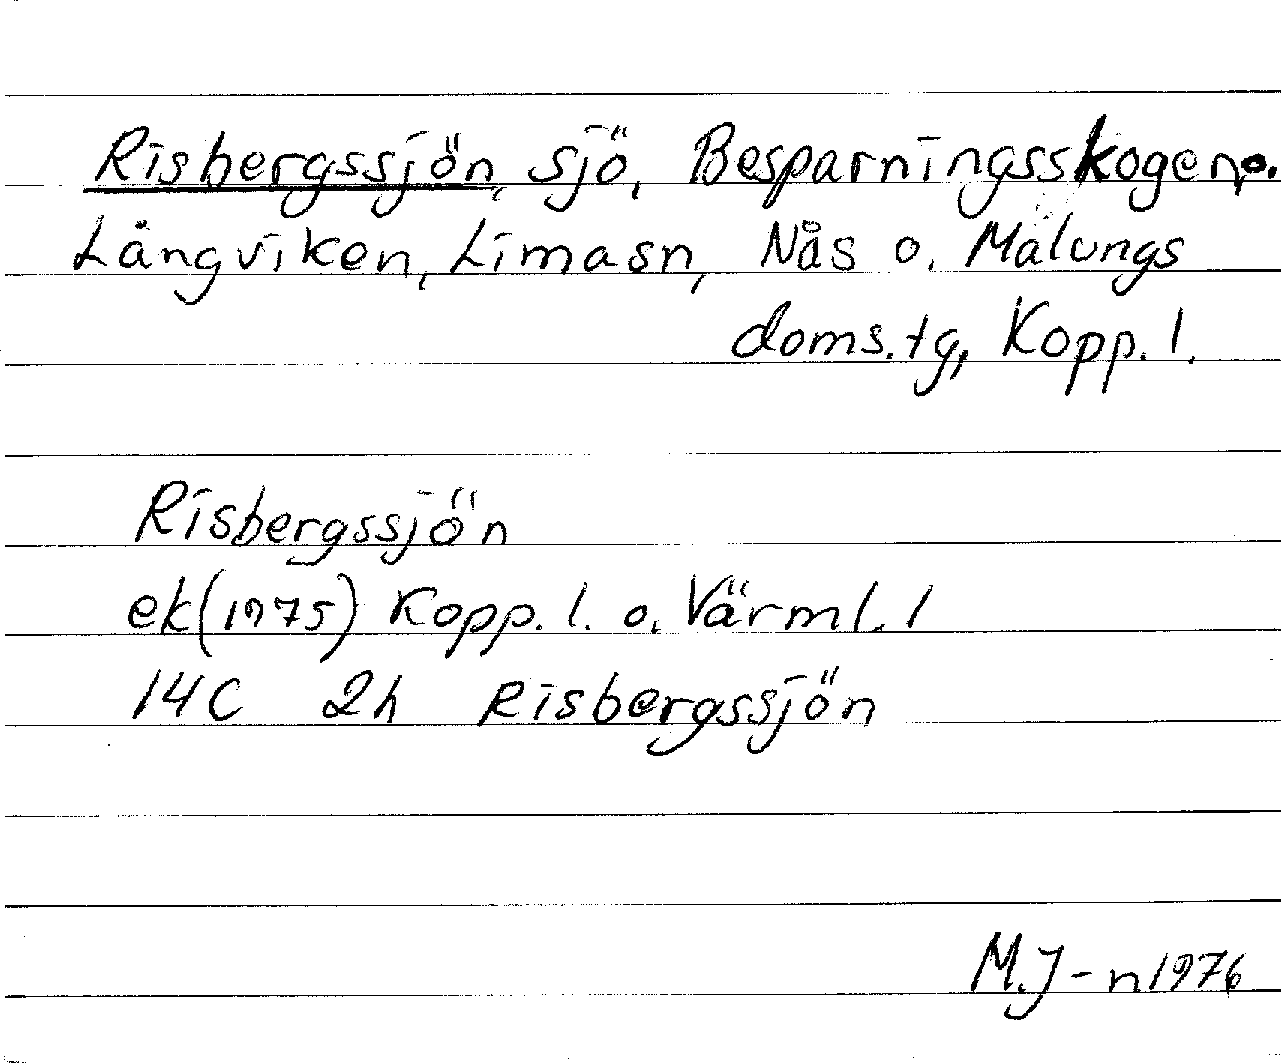 Risbergssjön, sjö, Besparningsskogen o.
Långviken, Limasn, Nås o. Malungs
doms.tg, Kopp. l.
Risbergssjön
ek(1975) Kopp. l. o. Värml. l
14C 2h Risbergssjön
M.J-n 1976